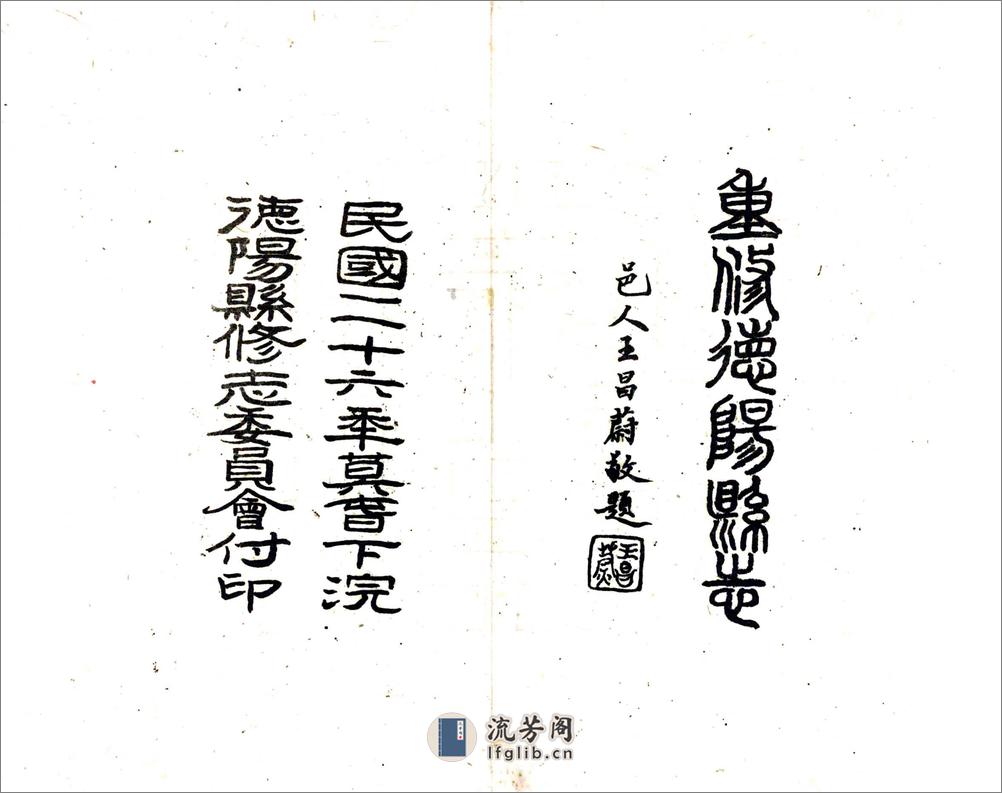 重修德陽縣志
邑人王昌蔚敬題
王昌蔚
民國二十六年莫萅下浣
德陽縣修志委員會付印
流芳阁
lfglib.cn